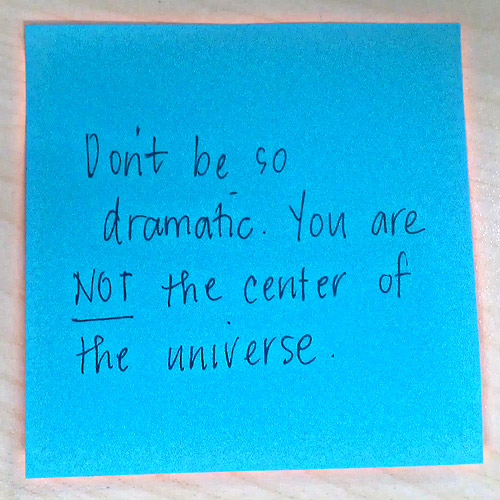 Don't be so
dramatic. You are
NOT the center of
the universe.